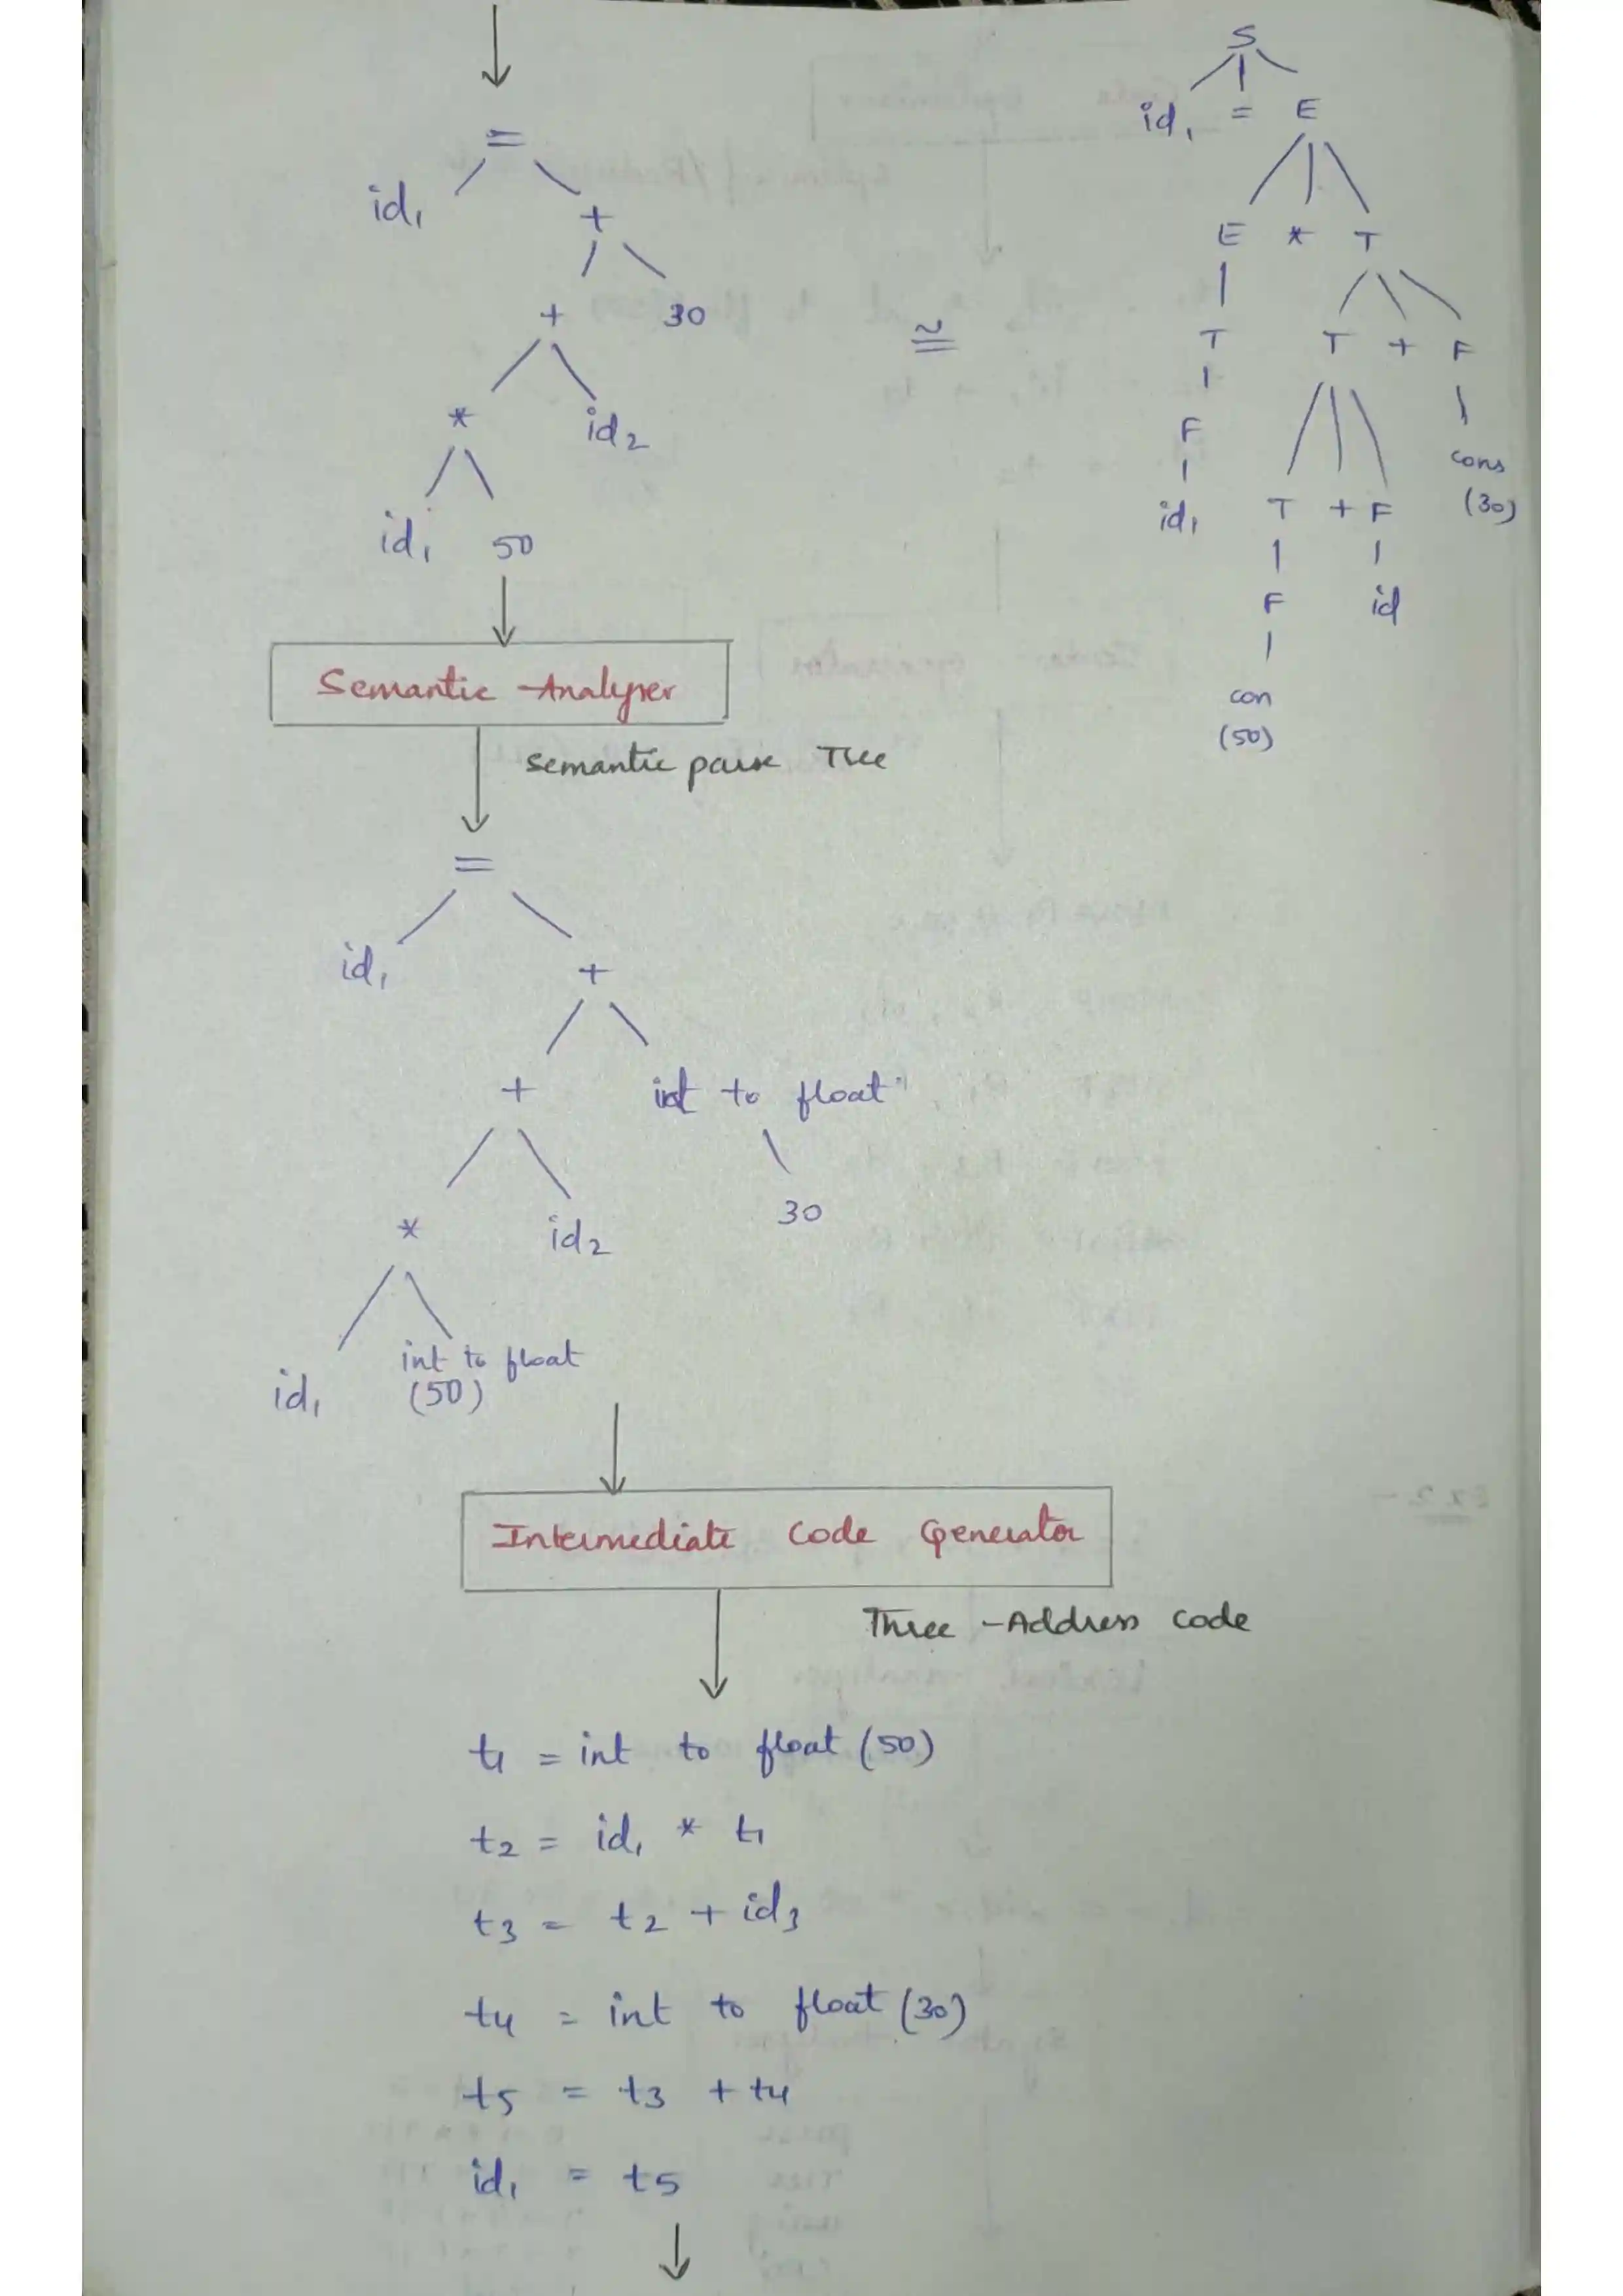 =
id₁ +
+ 30
* id₂
id₁ 50
≅
S
id₁ = E
E * T
T T + F
F cons
id₁ T + F (30)
F id
con
(50)
Semantic Analyser
semantic parse Tree
=
id₁ +
+ int to float
* id₂ 30
id₁ int to float
(50)
Intermediate Code Generator
Three-Address code
t₁ = int to float (50)
t₂ = id₁ * t₁
t₃ = t₂ + id₃
t₄ = int to float (30)
t₅ = t₃ + t₄
id₁ = t₅